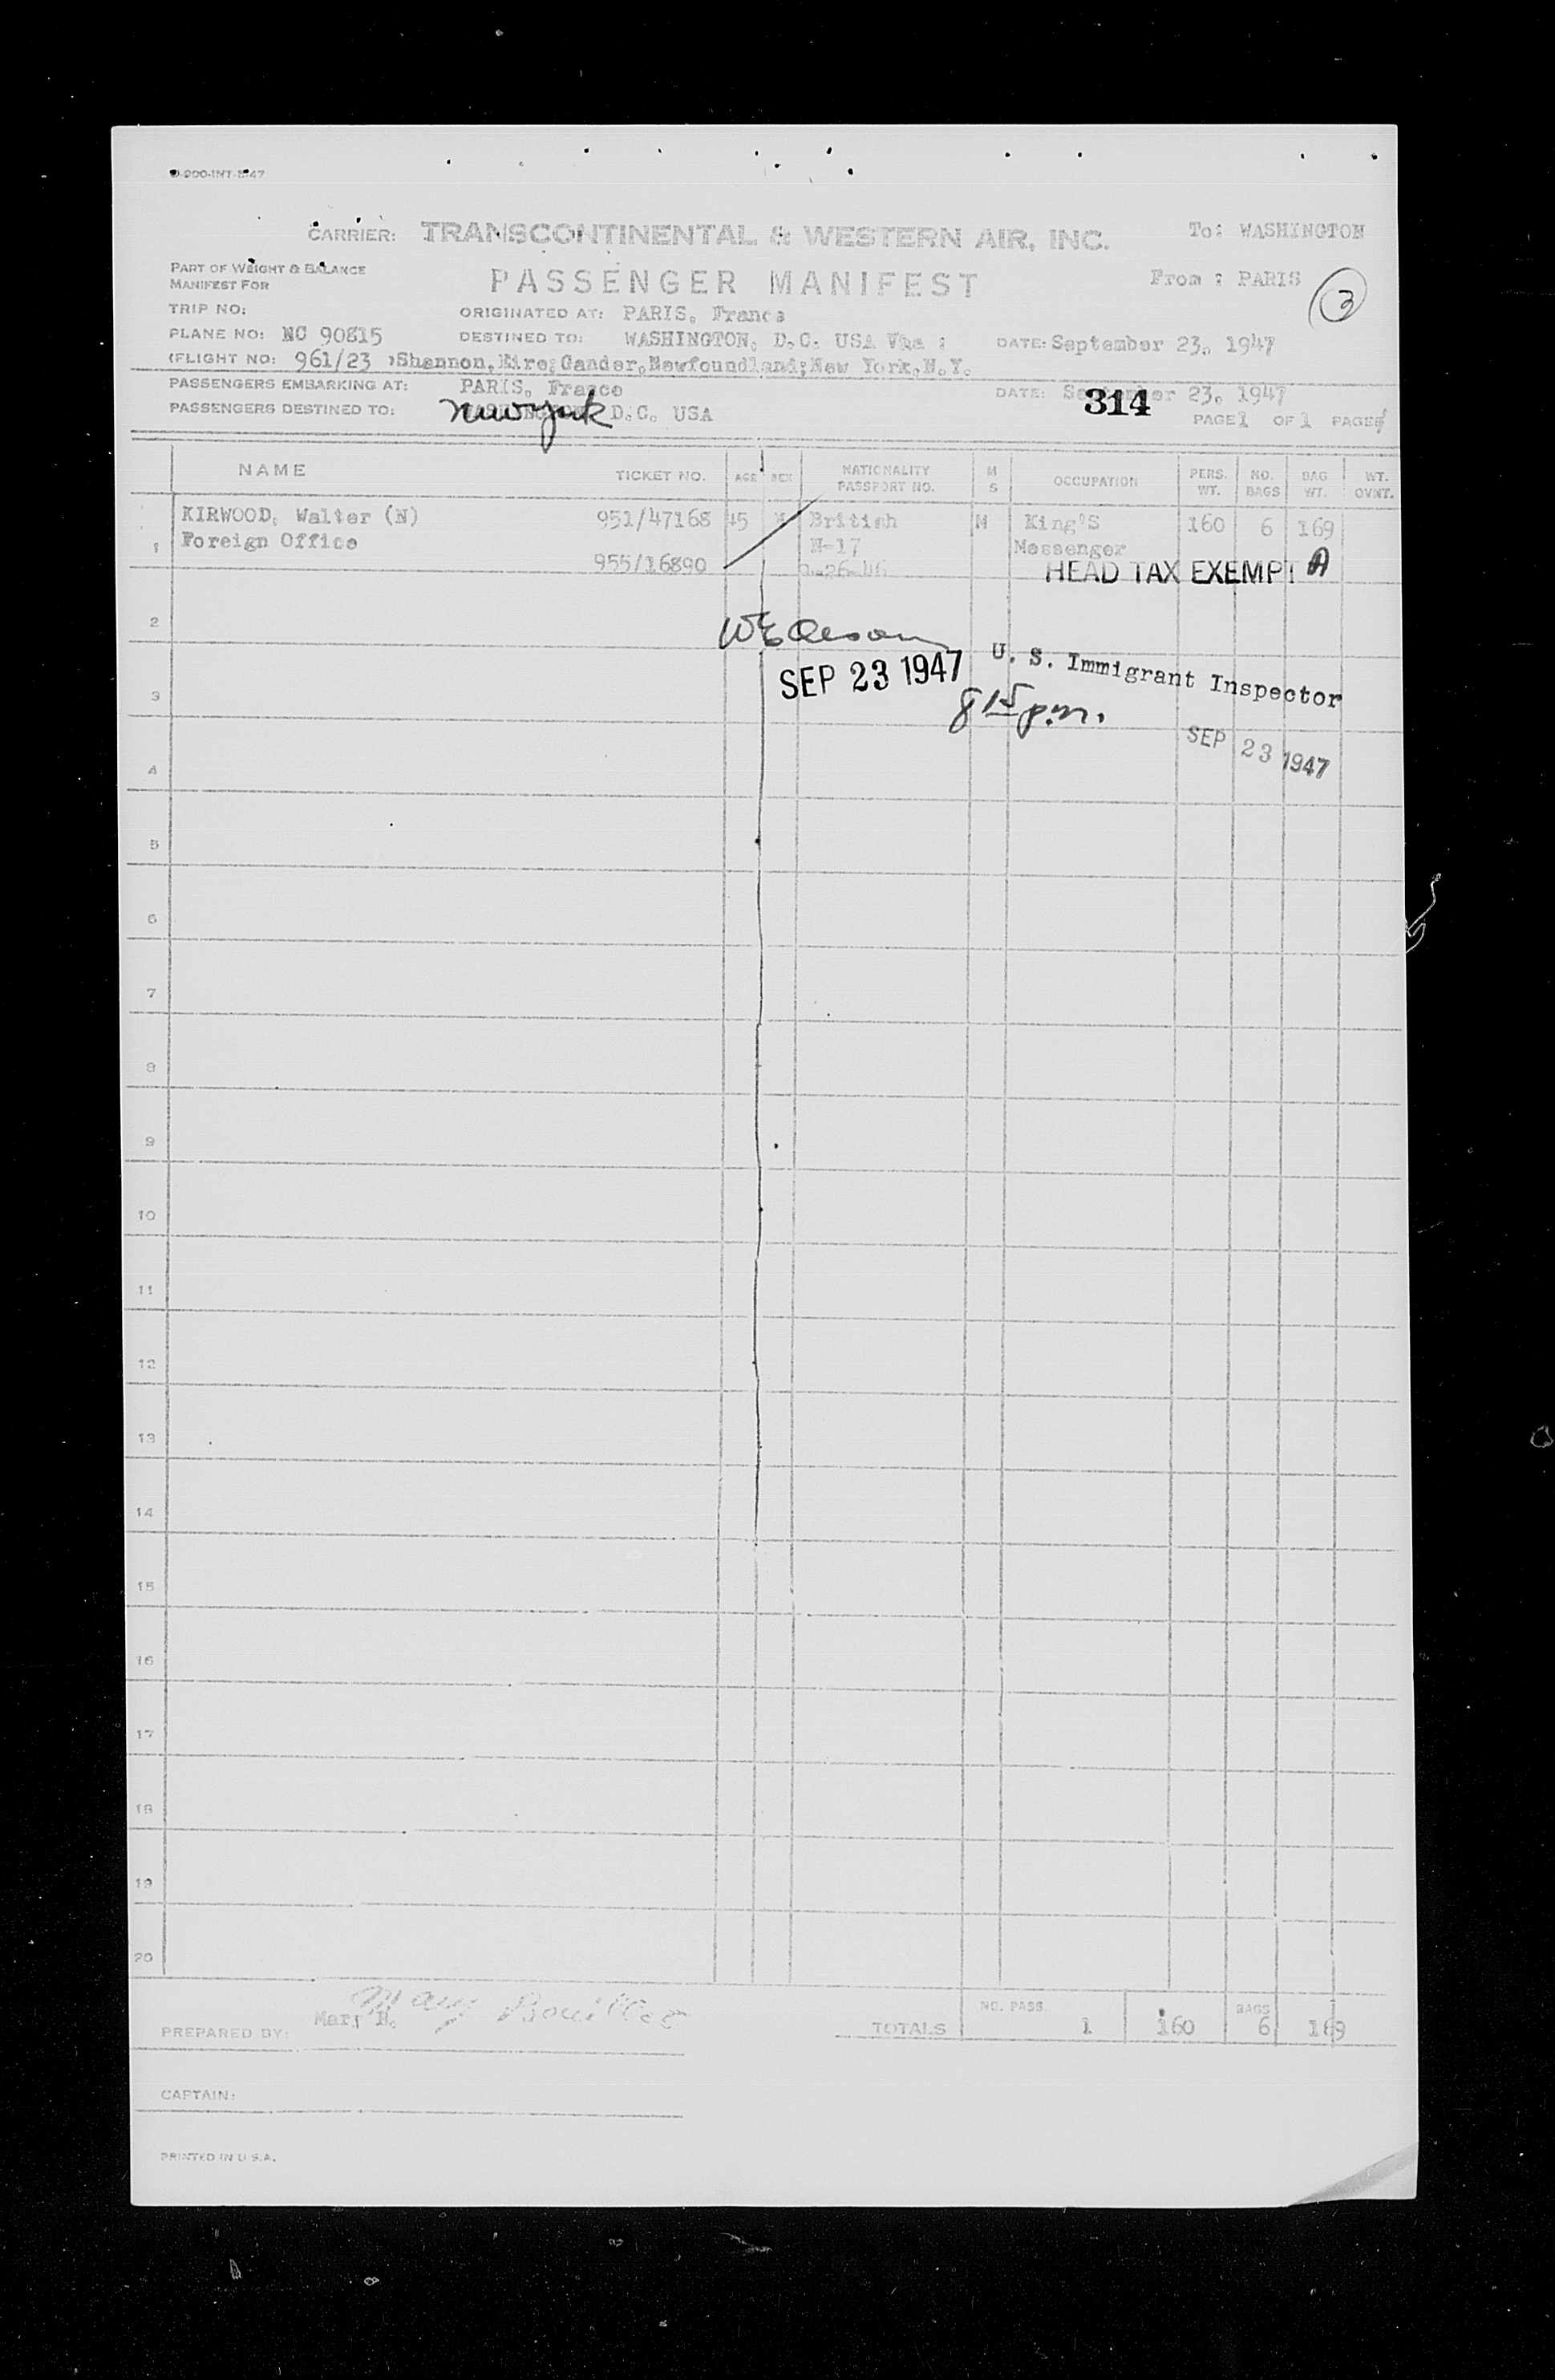 CARRIER: TRANSCONTINENTAL & WESTERN AIR, INC. To: WASHINGTON
PART OF WEIGHT & BALANCE
MANIFEST FOR
PASSENGER MANIFEST From : PARIS
3
TRIP NO: ORIGINATED AT: PARIS, France
PLANE NO: NC 90815 DESTINED TO: WASHINGTON, D.C. USA Via : DATE: September 23, 1947
(FLIGHT NO: 961/23 Shannon, Eire; Gander, Newfoundland; New York, N.Y.
PASSENGERS EMBARKING AT: PARIS, France DATE: September 23, 1947
314
PASSENGERS DESTINED TO: New York D.C. USA PAGE 1 OF 1 PAGES
NAME TICKET NO. AGE SEX NATIONALITY PASSPORT NO. M S OCCUPATION PERS. WT. NO. BAGS BAG WT. WT. OVNT.
KIRWOOD, Walter (N) 951/47168 45 M British M King'S 160 6 169
1 Foreign Office N-17 Messenger
955/16890
HEAD TAX EXEMPT A
2
U. S. Immigrant Inspector
SEP 23 1947
3
8 15 p.m.
SEP 23 1947
4
5
6
7
8
9
10
11
12
13
14
15
16
17
18
19
20
Mary Bouillet
Mary B.
PREPARED BY:
NO. PASS. BAGS
TOTALS 1 160 6 169
CAPTAIN:
PRINTED IN U.S.A.